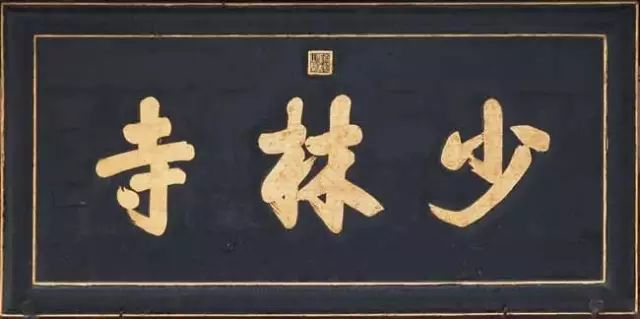 少林寺